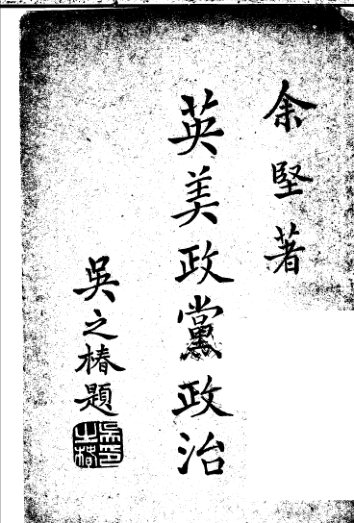 余堅著
英美政黨政治
吳之椿題